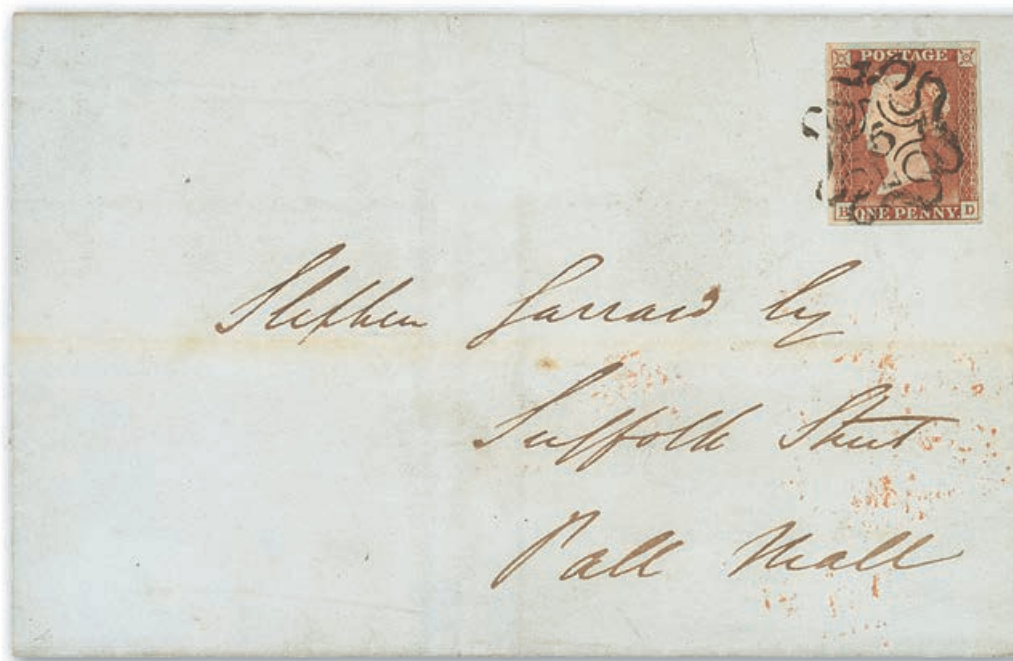 POSTAGE
6
B ONE PENNY D
Stephen Garrard Esq
Suffolk Street
Pall Mall